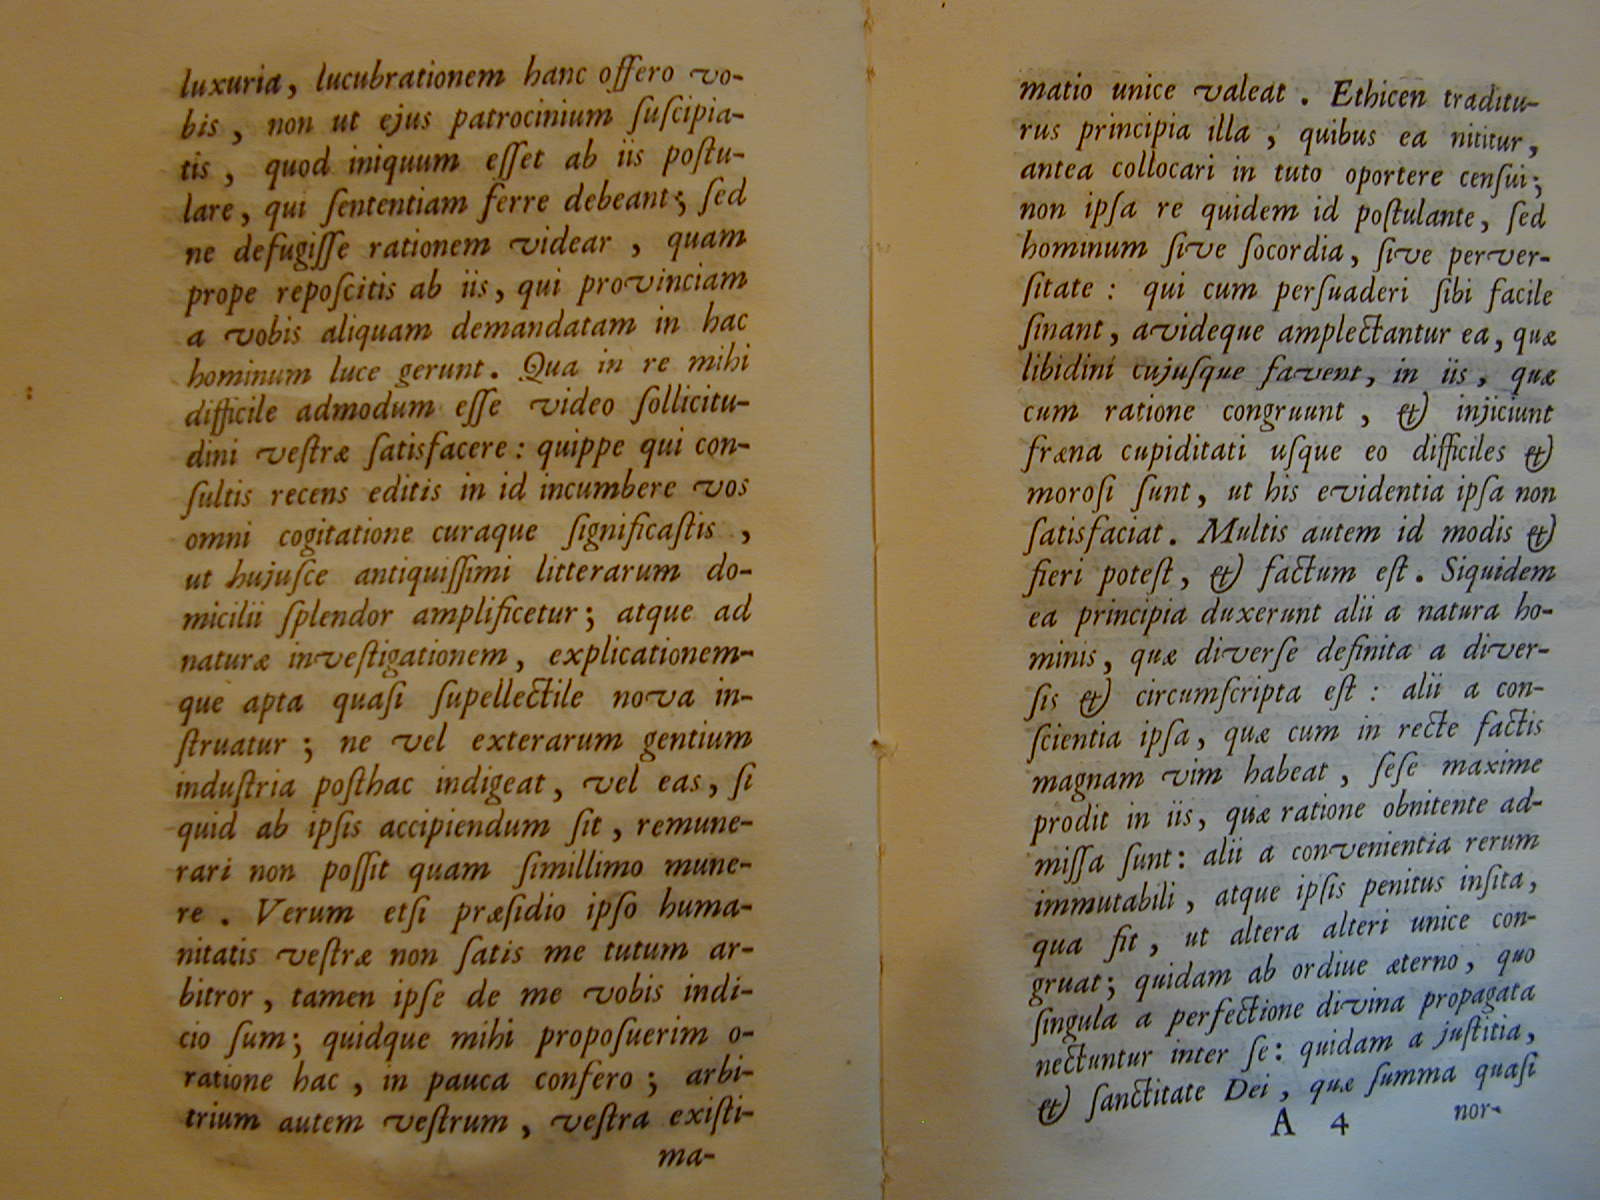 luxuria, lucubrationem hanc offero vo-
bis, non ut ejus patrocinium ſuſcipia-
tis, quod iniquum eſſet ab iis poſtu-
lare, qui ſententiam ferre debeant; ſed
ne defugiſſe rationem videar, quam
prope repoſcitis ab iis, qui provinciam
a vobis aliquam demandatam in hac
hominum luce gerunt. Qua in re mihi
difficile admodum eſſe video ſollicitu-
dini veſtræ ſatisfacere: quippe qui con-
ſultis recens editis in id incumbere vos
omni cogitatione curaque ſignificaſtis,
ut hujuſce antiquiſſimi litterarum do-
micilii ſplendor amplificetur; atque ad
naturæ inveſtigationem, explicationem-
que apta quaſi ſupellectile nova in-
ſtruatur; ne vel exterarum gentium
induſtria poſthac indigeat, vel eas, ſi
quid ab ipſis accipiendum ſit, remune-
rari non poſſit quam ſimillimo mune-
re. Verum etſi præſidio ipſo huma-
nitatis veſtræ non ſatis me tutum ar-
bitror, tamen ipſe de me vobis indi-
cio ſum; quidque mihi propoſuerim o-
ratione hac, in pauca confero; arbi-
trium autem veſtrum, veſtra exiſti-
ma-
matio unice valeat. Ethicen traditu-
rus principia illa, quibus ea nititur,
antea collocari in tuto oportere cenſui;
non ipſa re quidem id poſtulante, ſed
hominum ſive ſocordia, ſive perver-
ſitate: qui cum perſuaderi ſibi facile
ſinant, avideque amplectantur ea, quæ
libidini cujuſque favent, in iis, quæ
cum ratione congruunt, & injiciunt
fræna cupiditati uſque eo difficiles &
moroſi ſunt, ut his evidentia ipſa non
ſatisfaciat. Multis autem id modis &
fieri poteſt, & factum eſt. Siquidem
ea principia duxerunt alii a natura ho-
minis, quæ diverſe definita a diver-
ſis & circumſcripta eſt: alii a con-
ſcientia ipſa, quæ cum in recte factis
magnam vim habeat, ſeſe maxime
prodit in iis, quæ ratione obnitente ad-
miſſa ſunt: alii a convenientia rerum
immutabili, atque ipſis penitus inſita,
qua fit, ut altera alteri unice con-
gruat; quidam ab ordiue æterno, quo
ſingula a perfectione divina propagata
nectuntur inter ſe: quidam a juſtitia,
& ſanctitate Dei, quæ ſumma quaſi
A 4 nor-